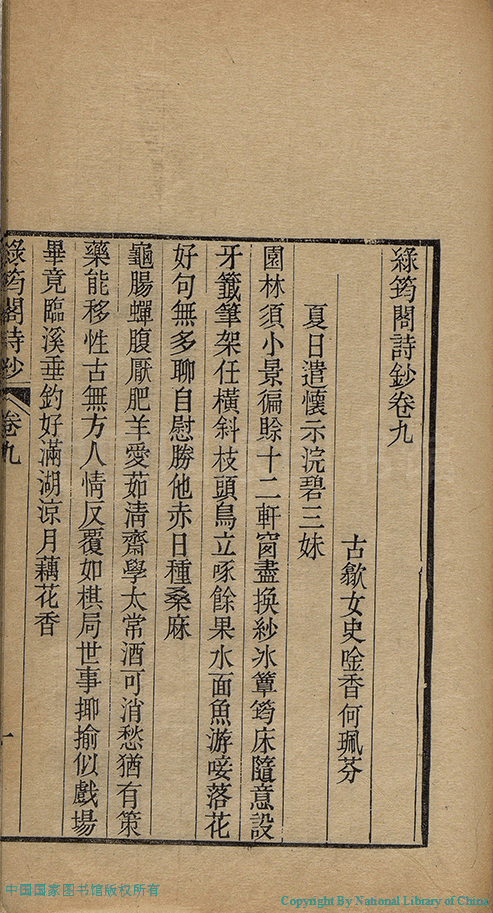 綠筠閣詩鈔卷九
古歙女史唫香何珮芬
夏日遣懷示浣碧三妹
園林須小景徧賒十二軒窗盡換紗冰簟筠床隨意設
牙籤筆架任橫斜枝頭鳥立啄餘果水面魚游唼落花
好句無多聊自慰勝他赤日種桑麻
龜腸蟬腹厭肥羊愛茹清齋學太常酒可消愁猶有策
藥能移性古無方人情反覆如棋局世事揶揄似戲場
畢竟臨溪垂釣好滿湖涼月藕花香
綠筠閣詩鈔 卷九 一
中国国家图书馆版权所有
Copyright By National Library of China